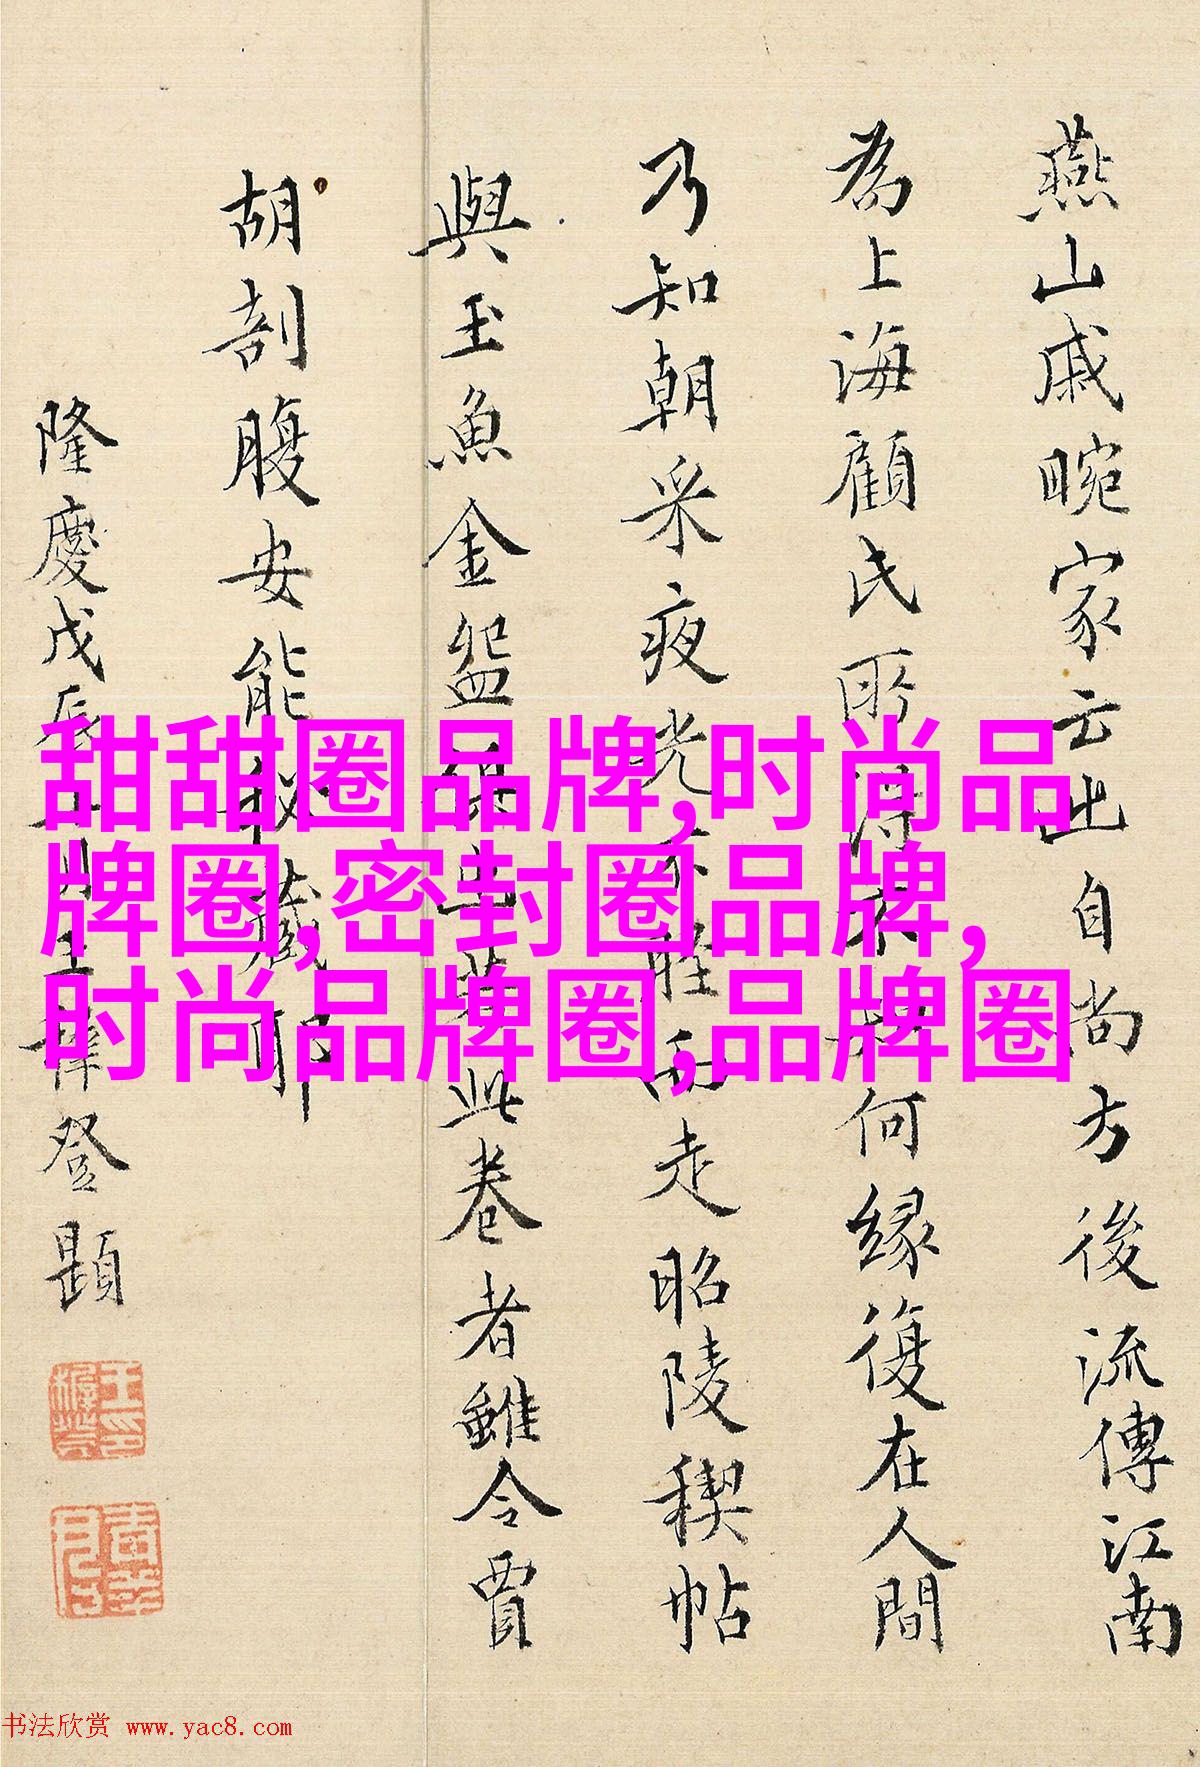 燕山戚畹家云出自尚方後流傳江南
為上海顧氏所得不知何緣復在人間
乃知朝采夜光不胫而走昭陵稧帖
與玉魚金盌俱出此卷者雖令賈
胡剖腹安能秘藏耶
隆慶戊辰王穉登題
甜甜圈品牌,时尚品
牌圈,密封圈品牌,
时尚品牌圈,品牌圈
书法欣赏 www.yac8.com